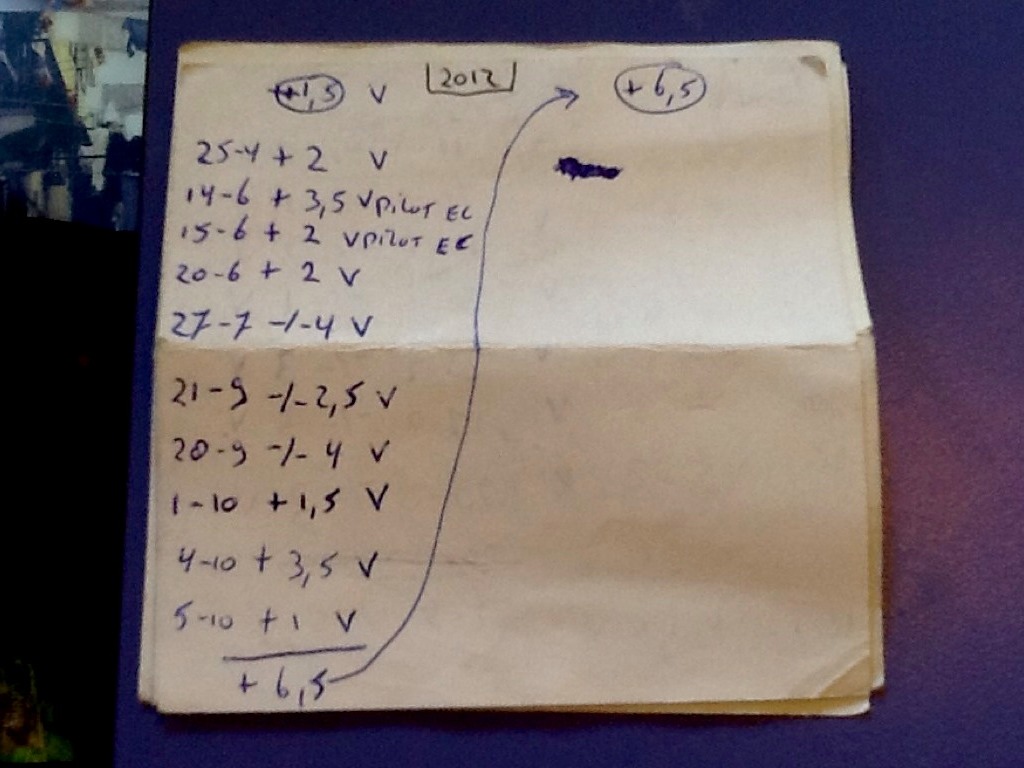 +1,5 V 2012 + 6,5
25-4 + 2 V
14-6 + 3,5 V PILOT EC
15-6 + 2 V PILOT EC
20-6 + 2 V
27-7 -/- 4 V
21-9 -/- 2,5 V
20-9 -/- 4 V
1-10 + 1,5 V
4-10 + 3,5 V
5-10 + 1 V
+ 6,5